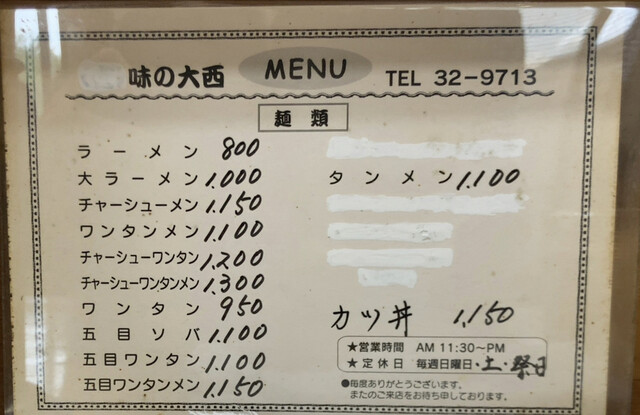 味の大西 MENU TEL 32-9713
麺類
ラーメン 800
大ラーメン 1.000
チャーシューメン 1.150
ワンタンメン 1.100
チャーシューワンタン 1.200
チャーシューワンタンメン 1.300
ワンタン 950
五目ソバ 1.100
五目ワンタン 1.100
五目ワンタンメン 1.150
タンメン 1.100
カツ丼 1.150
★営業時間 AM 11:30〜PM
★定休日 毎週日曜日・土・祭日
●毎度ありがとうございます。
またのご来店をお待ち申しております。